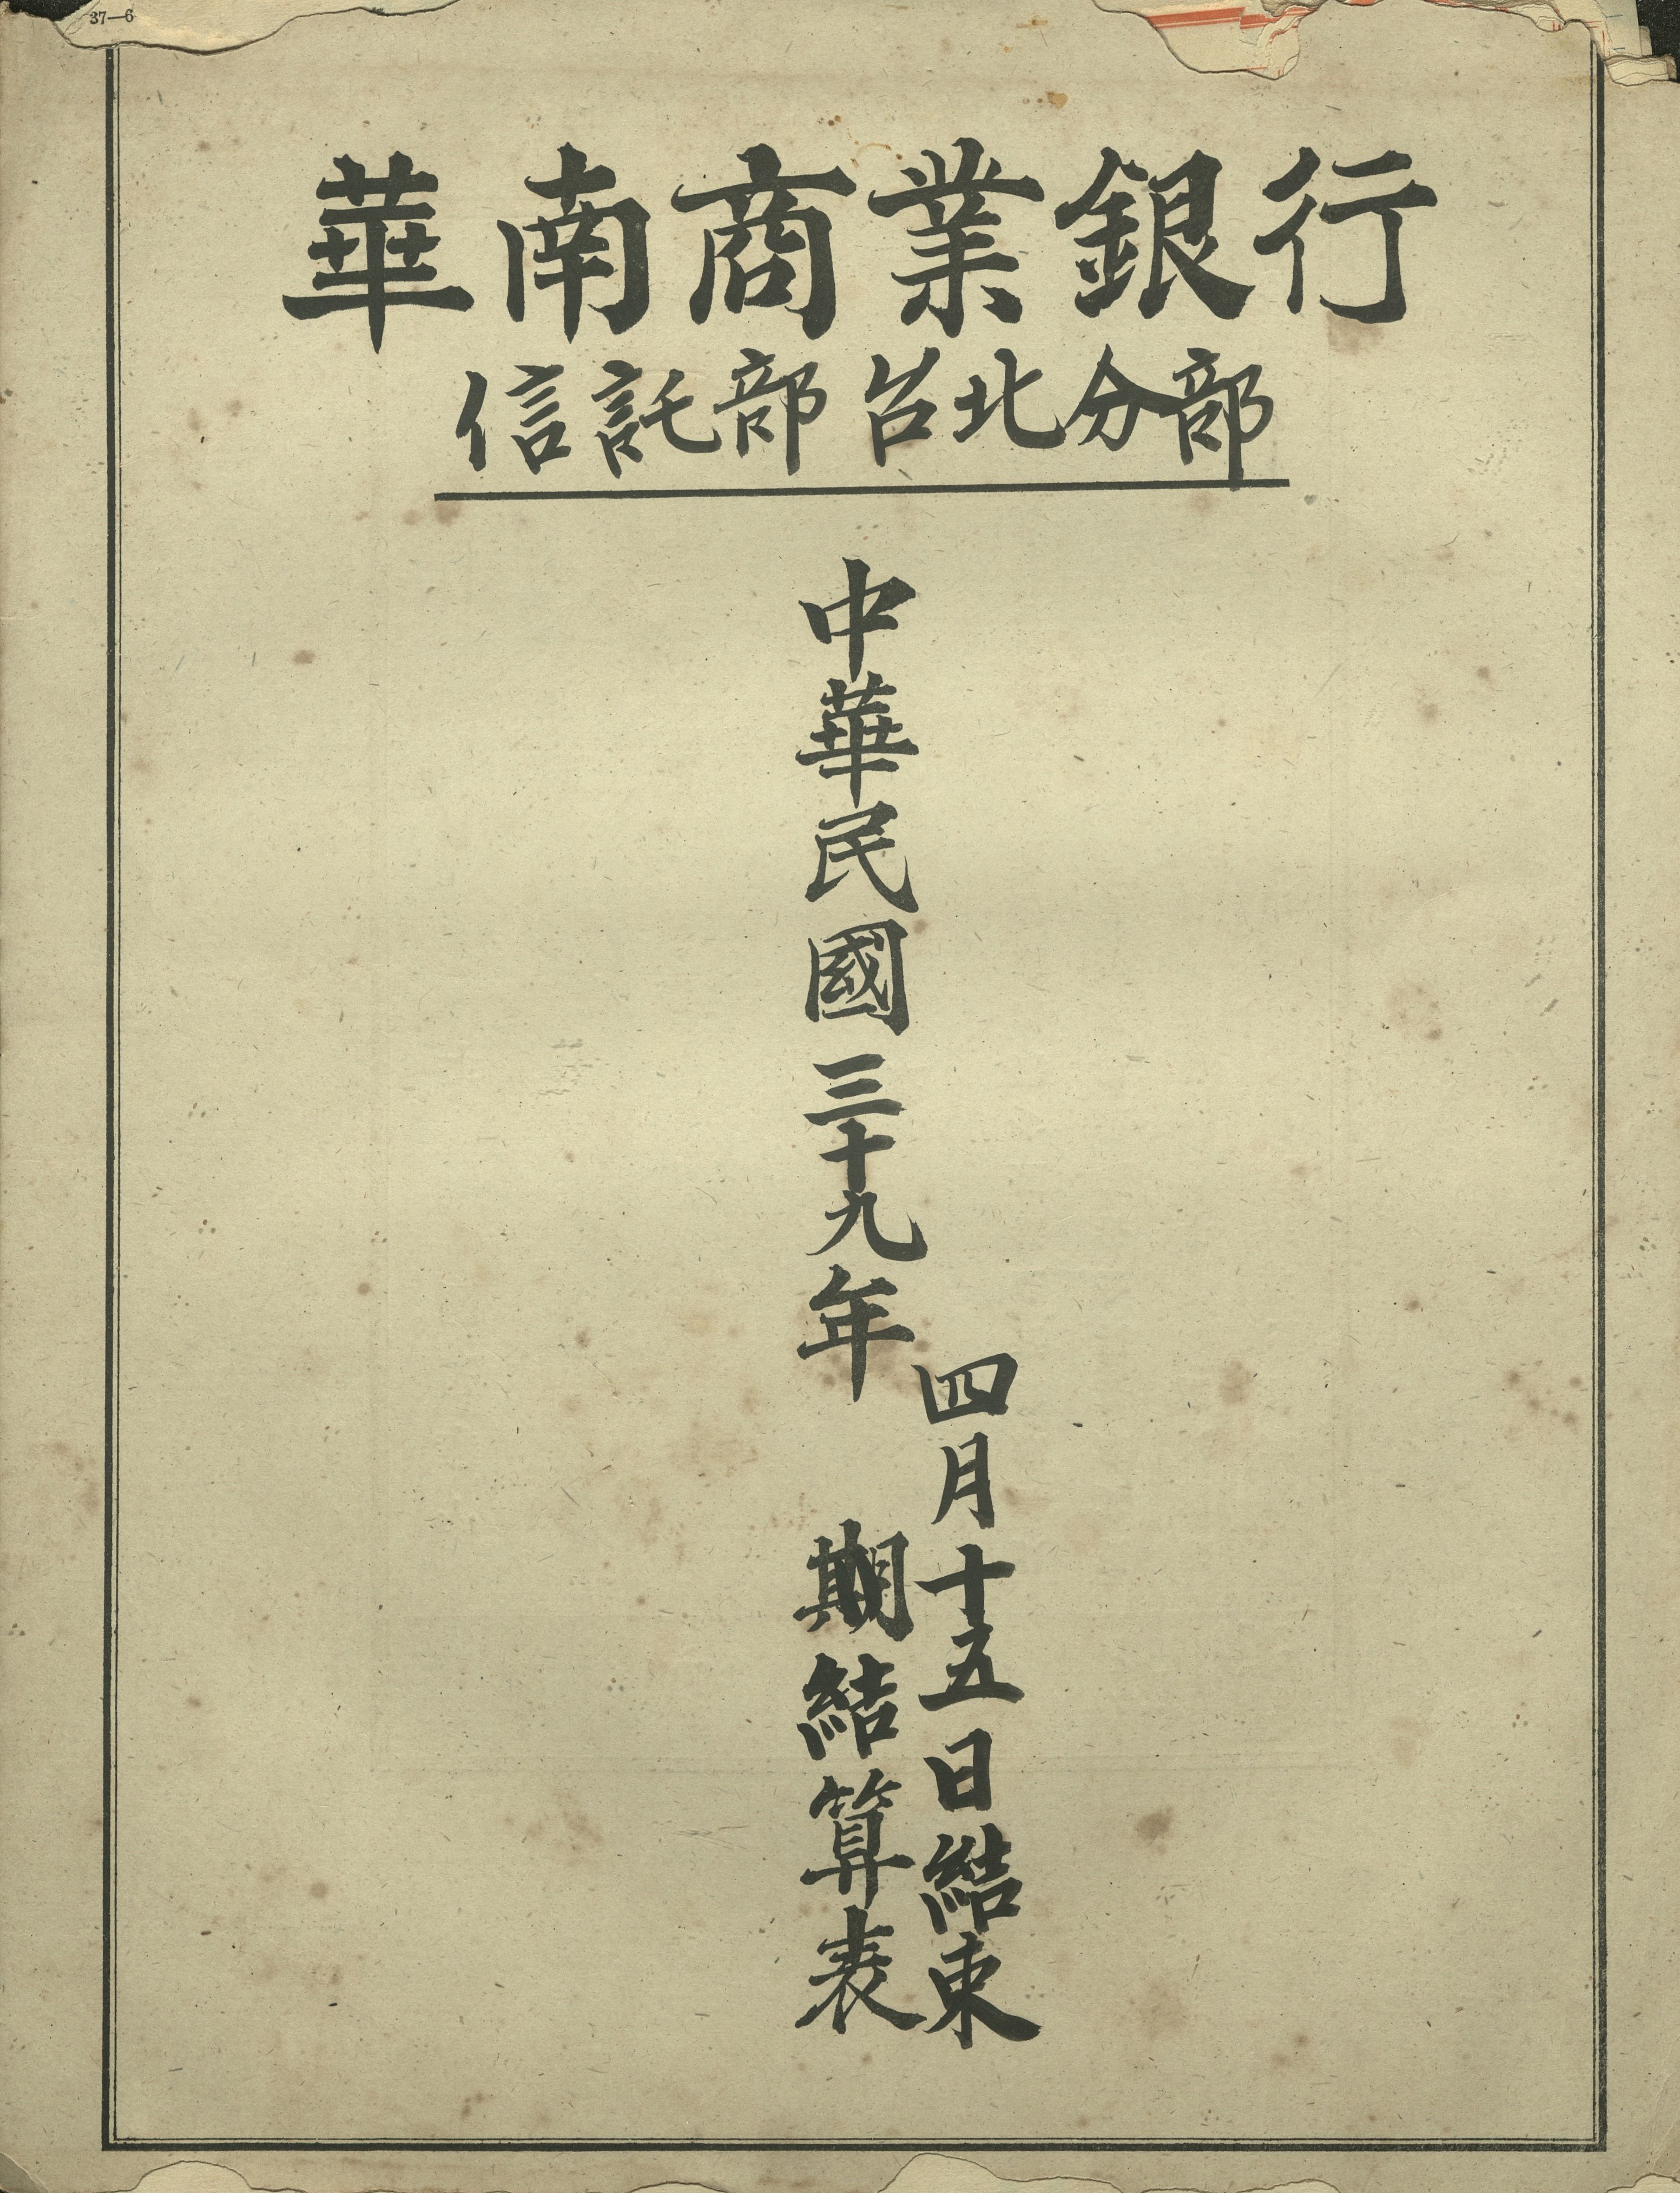 37—6
華南商業銀行
信託部台北分部
中華民國三十九年
四月十五日結束
期結算表